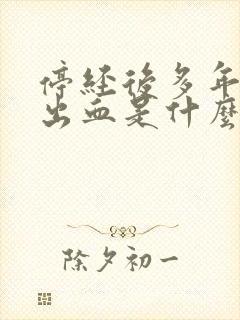 停经后多年
出血是什麼
除夕初一